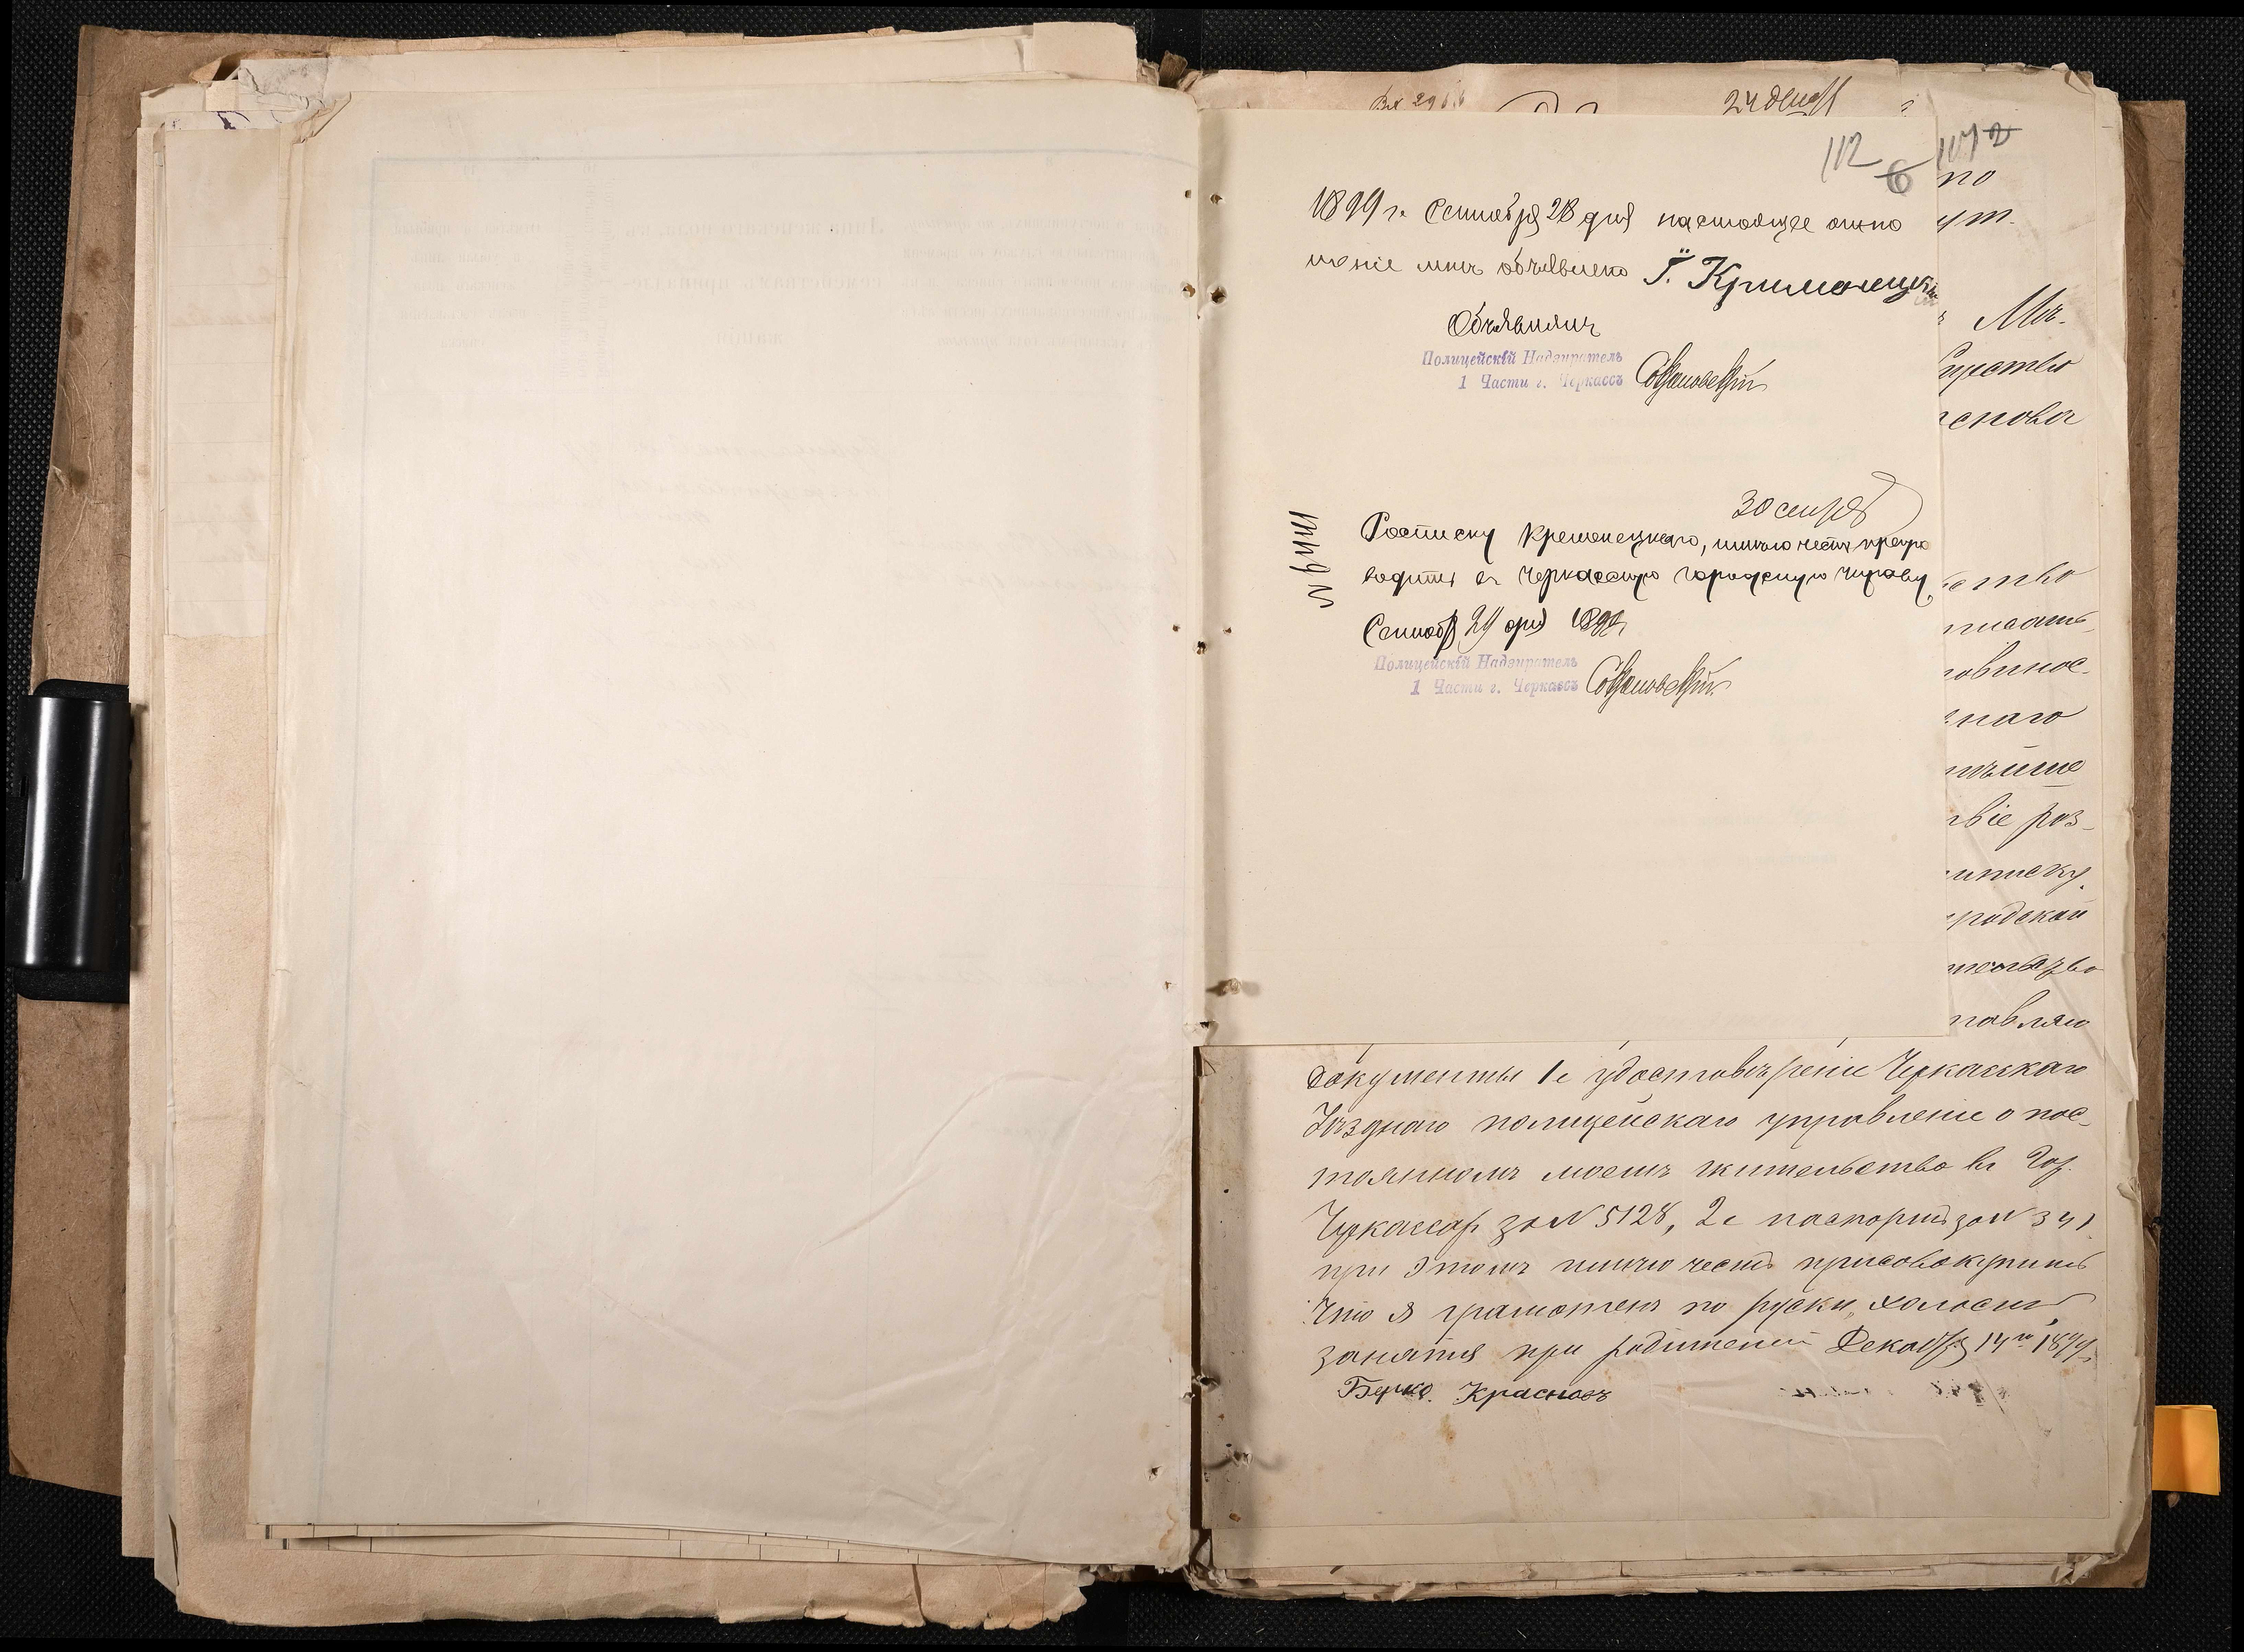 Вх 2966
24 декаб
112
6
1072
1899 г. Сентября 28 дня настоящее отно
шеніе мнѣ объявлено Г. Кримонецкій
Объявилъ
Полицейскій Надзиратель
1 Части г. Черкассъ
30 сентяб
№ 6441
Росписку Кремонецкаго, имѣю честь препро
водить въ Черкасскую городскую управу
Сентяб 29 дня 1899
Полицейскій Надзиратель
1 Части г. Черкассъ
по
ут.
Мѣ.
щество
снова
ство
писать
повинос
наго
нѣише
твіе роз-
писку
родской
павляю
документы 1е удостовѣреніе Черкаскаго
Уѣзднаго полицейскаго управленіе о пос-
тоянномъ моемъ жительство въ Гор.
Черкассах за N 5128, 2е паспортъ за N 341
при этомъ имѣю честь присовокупить
что я грамотенъ по руски, холостъ
занятія при родителей Декабря 14го 1899 г.
Берко Красновъ